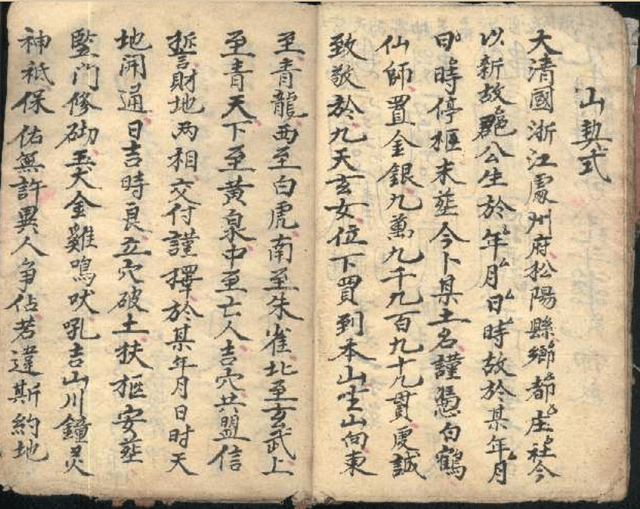 山契式
大清國浙江處州府松陽縣鄉都庄社今
以新故 公生於年月日時故於某年月
日時停柩未塟今卜某土名謹憑白鶴
仙師置金銀九萬九千九百九十九貫虔誠
致敬於九天玄女位下買到本山坐山向東
至青龍西至白虎南至朱雀北至玄武上
至青天下至黃泉中至亡人吉穴共盟信
誓財地兩相交付謹擇於某年月日時天
地開通日吉時良立穴破土扶柩安塟
監門修砌玉犬金雞鳴吠吼吉山川鐘灵
神祇保佑無許異人爭佔若違斯約地